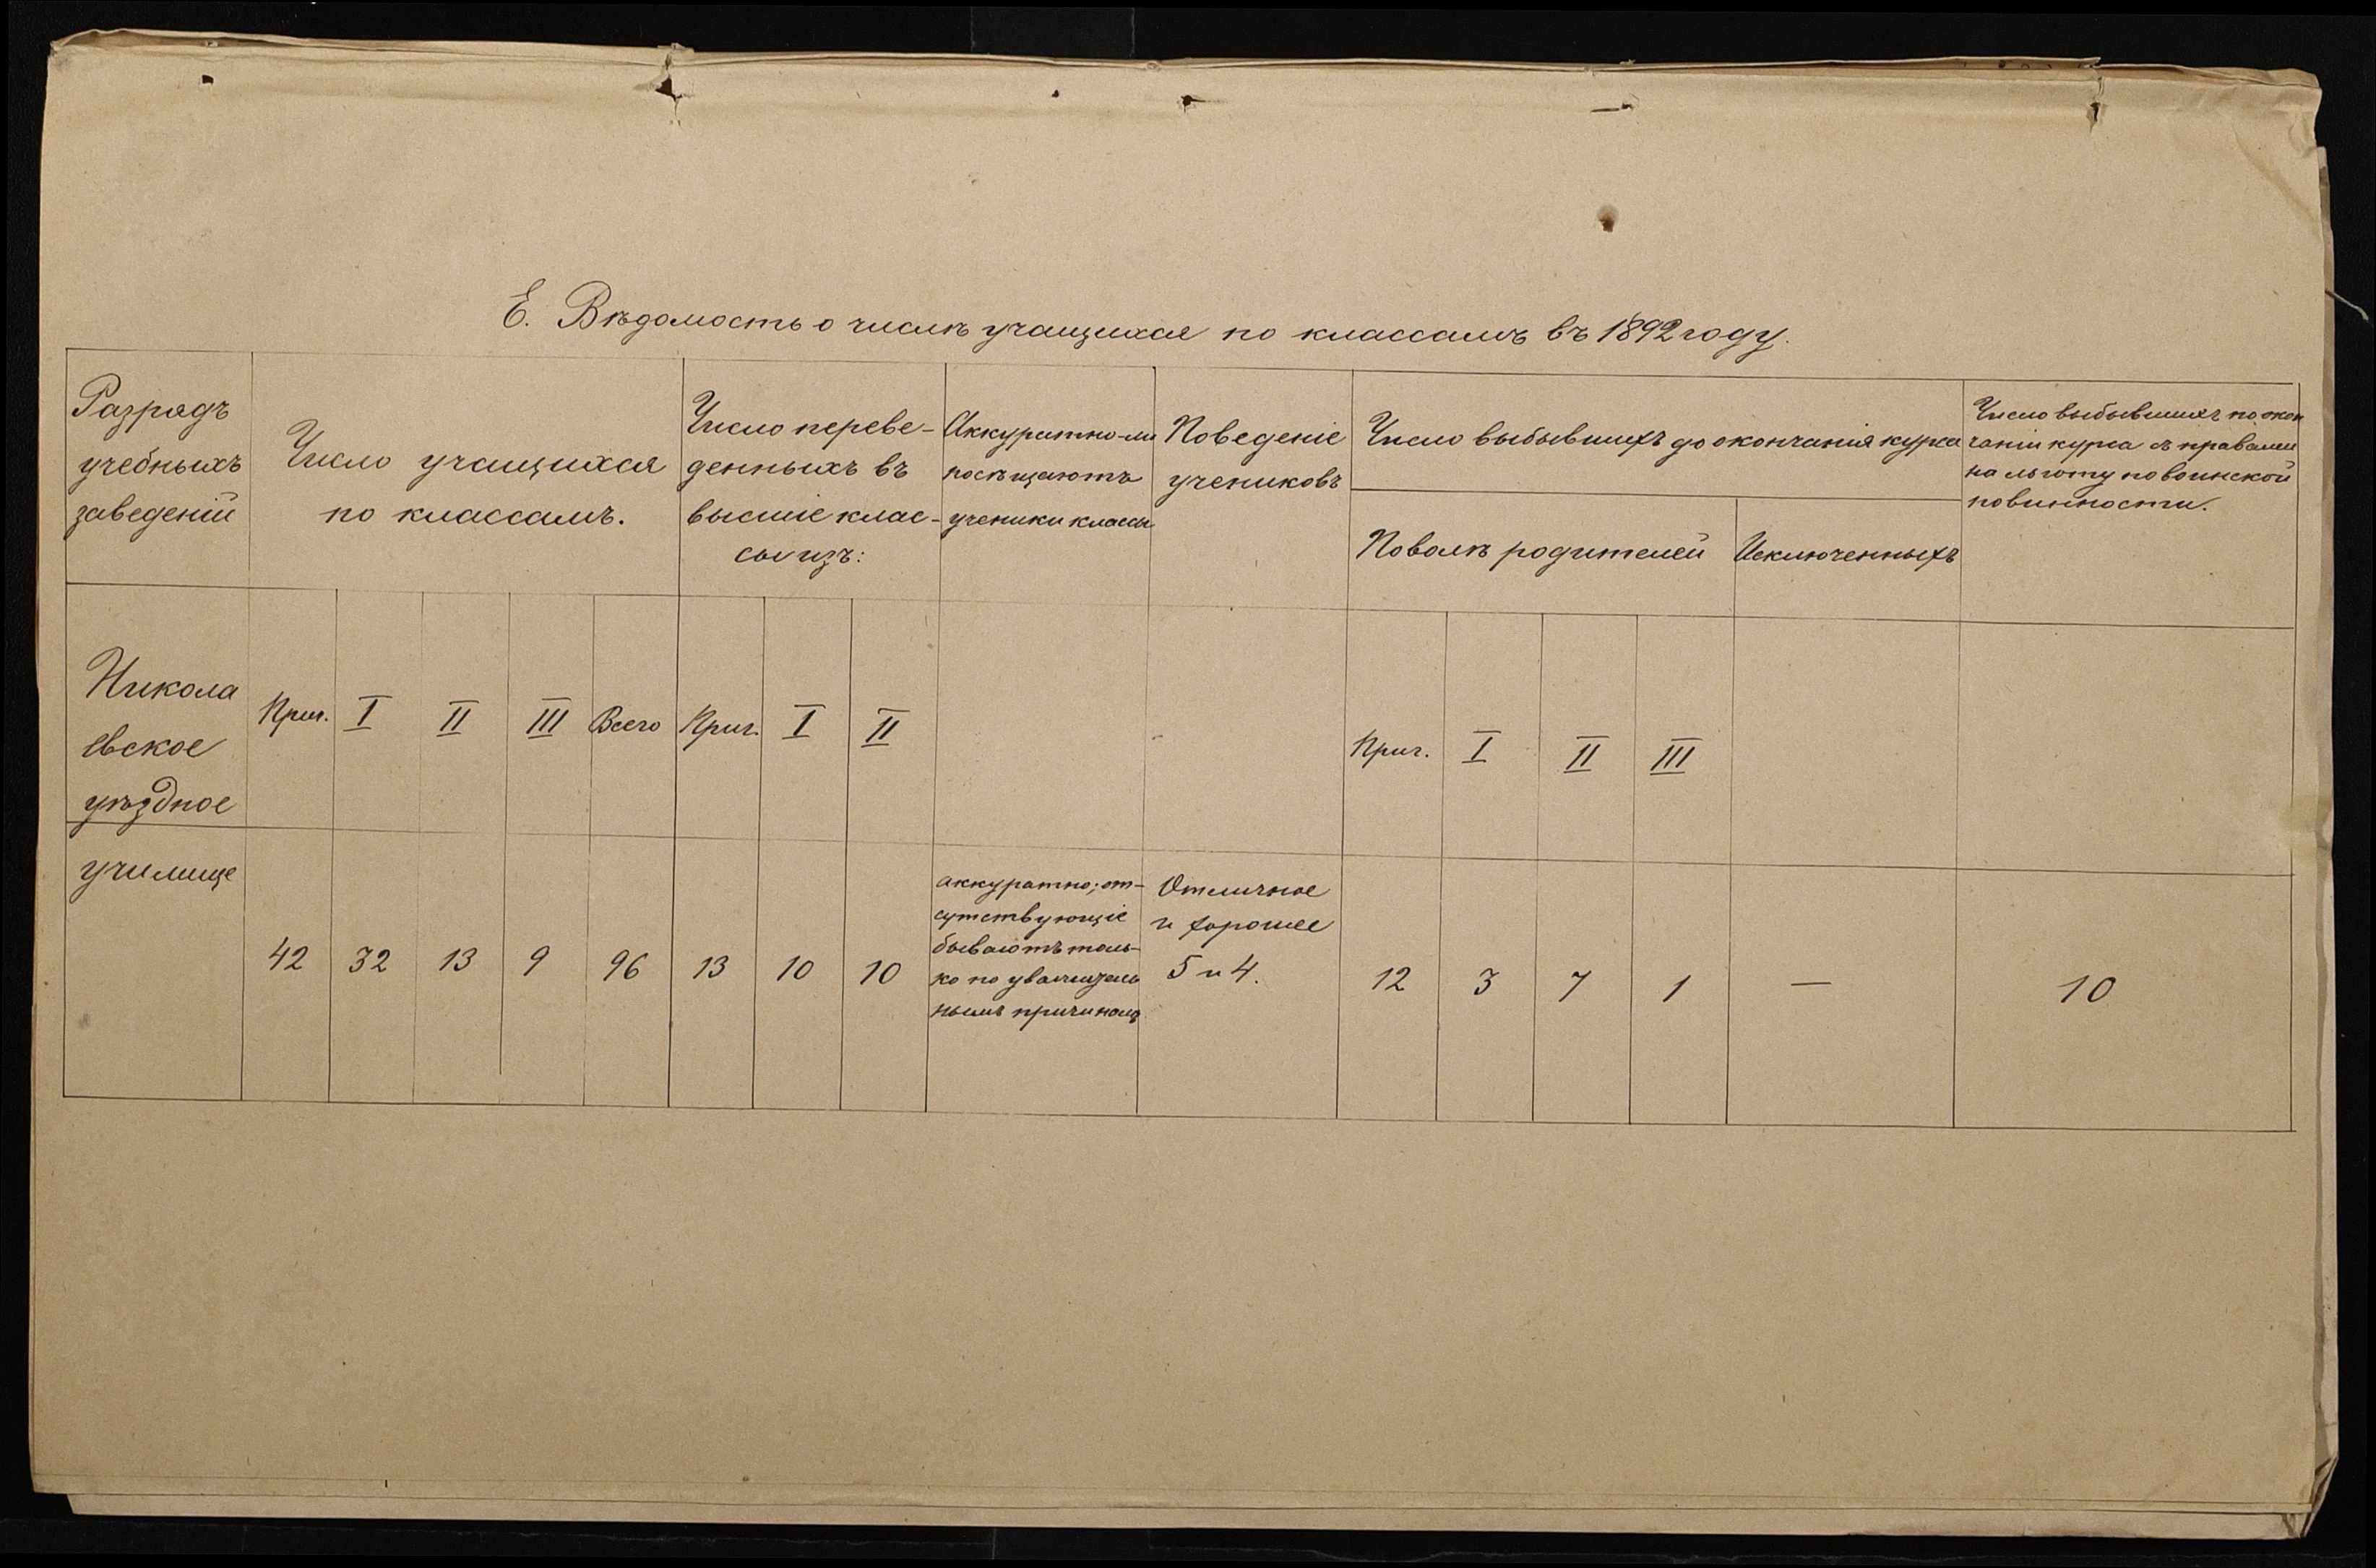 Е. Вѣдомость о числѣ учащихся по классамъ въ 1892 году.
Разрядъ
учебныхъ
заведеній
Число учащихся
по классамъ.
Число переве-
денныхъ въ
высшіе клас-
сы изъ:
Аккуратно-ли
посѣщаютъ
ученики классы
Поведеніе
учениковъ
Число выбывшихъ до окончанія курса
По волѣ родителей
Исключенныхъ
Число выбывшихъ по окон
чаніи курса съ правами
на льготу по воинской
повинности.
Никола
евское
уѣздное
училище
Приг. I II III Всего Приг. I II
Приг. I II III
42 32 13 9 96 13 10 10
аккуратно; от-
сутствующіе
бываютъ толь-
ко по уважитель
нымъ причинамъ
Отличное
и хорошее
5 и 4.
12 3 7 1 — 10